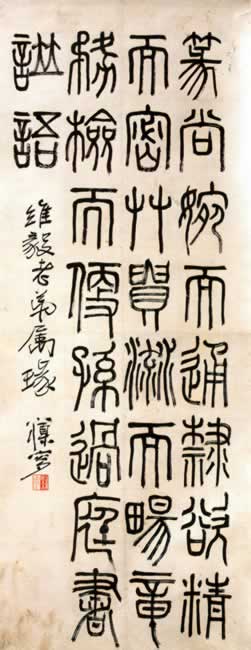 篆尚婉而通隸欲精
而密艸貴流而暢章
務檢而便孫過庭書
譜語
維毅老弟属